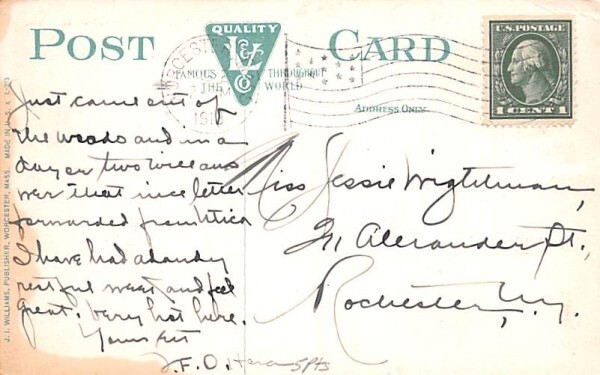 POST CARD
QUALITY
L&Co
FAMOUS THROUGHOUT
THE WORLD
WORCESTER
191
U.S. POSTAGE
1 CENT 1
ADDRESS ONLY
Just came out of
the woods and in a
day or two will ans
wer that nice letter
forwarded from Utica
I have had a dandy
restful week and feel
great. Very hot here.
Yours ett
J.F.O.
Miss Jessie Wightman,
Alexander St.,
Rochester, N.Y.
5 pts
J. I. WILLIAMS, PUBLISHER, WORCESTER, MASS. MADE IN U.S.A.